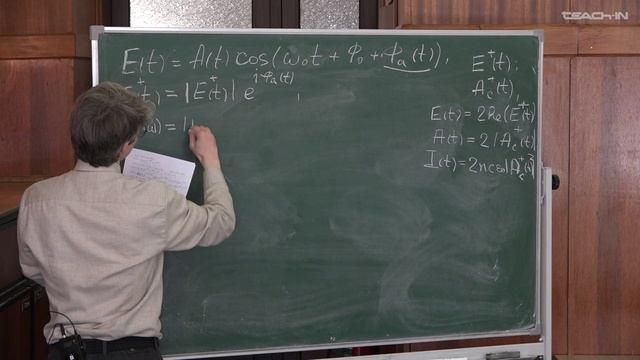 TEACH-IN
E(t) = A(t) cos(ω₀t + φ₀ + φₐ(t)),
E⁺(t) = |E⁺(t)| e^{iφₐ(t)},
(ω) = |
E⁺(t);
A⁺_c(t),
E(t) = 2Re(E⁺(t))
A(t) = 2|A⁺_c(t)|
I(t) = 2ncε₀|A⁺_c(t)|²